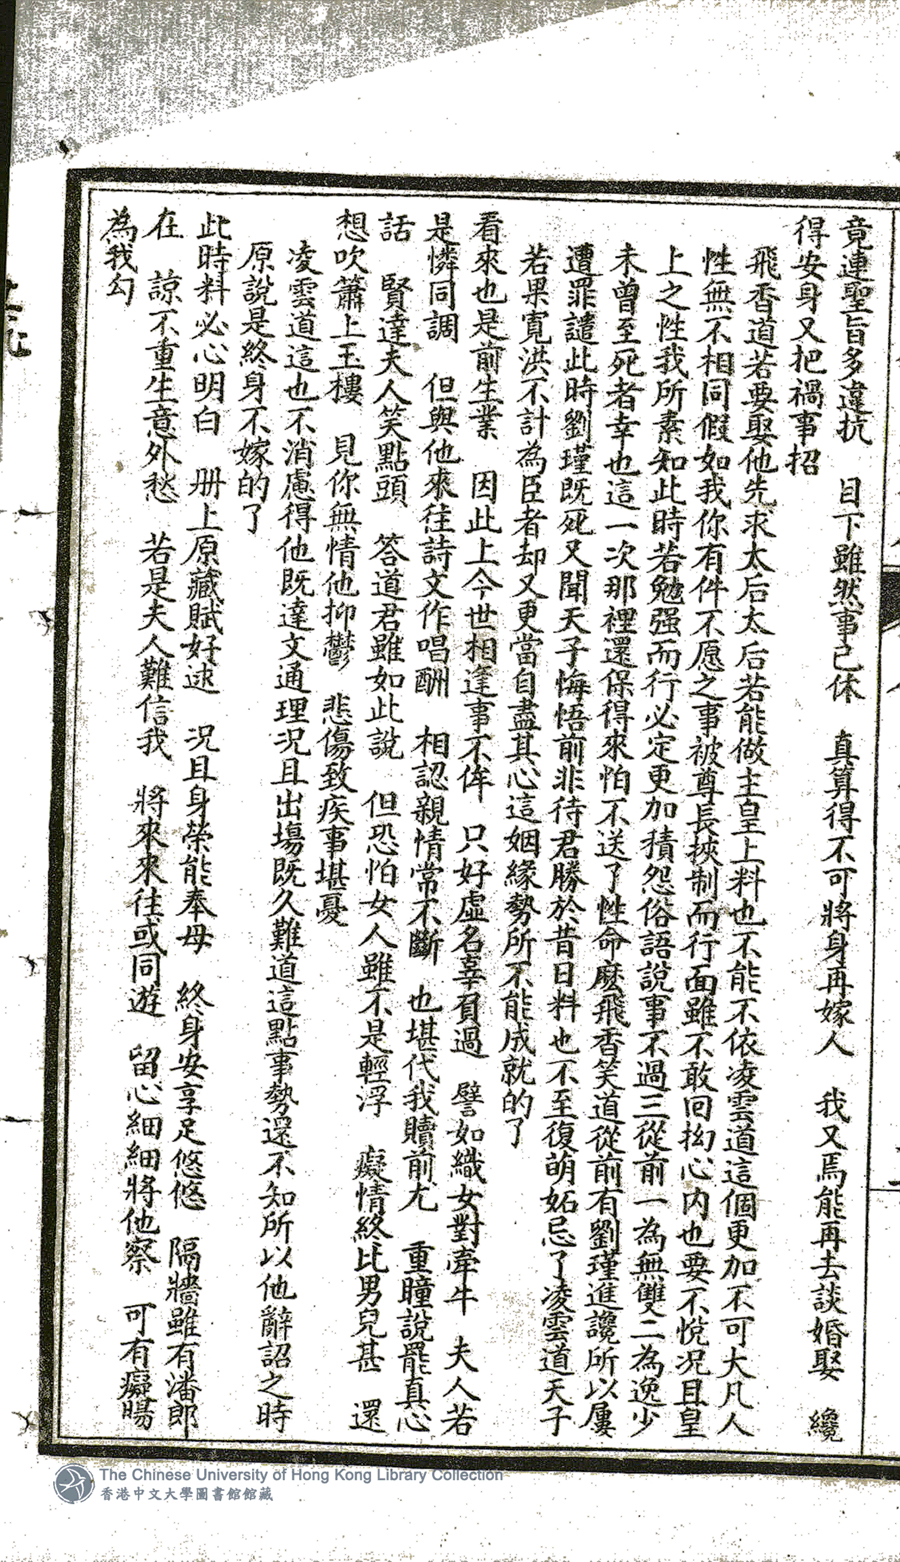 竟連聖旨多違抗　目下雖然事已休　真算得不可將身再嫁人　我又焉能再去談婚娶　纔
得安身又把禍事招
飛香道若要娶他先求太后太后若能做主皇上料也不能不依凌雲道這個更加不可大凡人
性無不相同假如我你有件不愿之事被尊長挾制而行面雖不敢回拗心內也要不悅况且皇
上之性我所素知此時若勉强而行必定更加積怨俗語說事不過三從前一為無雙二為逸少
未曾至死者幸也這一次那裡還保得來怕不送了性命麽飛香笑道從前有劉瑾進讒所以屢
遭罪譴此時劉瑾既死又聞天子悔悟前非待君勝於昔日料也不至復萌妬忌了凌雲道天子
若果寬洪不計為臣者却又更當自盡其心這姻緣勢所不能成就的了
看來也是前生業　因此上今世相逢事不侔　只好虛名辜負過　譬如織女對牽牛　夫人若
是憐同調　但與他來往詩文作唱酬　相認親情常不斷　也堪代我贖前尤　重瞳說罷真心
話　賢達夫人笑點頭　答道君雖如此說　但恐怕女人雖不是輕浮　癡情終比男兒甚　還
想吹簫上玉樓　見你無情他抑鬱　悲傷致疾事堪憂
凌雲道這也不消慮得他既達文通理況且出塲既久難道這點事勢還不知所以他辭詔之時
原說是終身不嫁的了
此時料必心明白　册上原藏賦好逑　況且身榮能奉母　終身安享足悠悠　隔牆雖有潘郎
在　諒不重生意外愁　若是夫人難信我　將來來往或同遊　留心細細將他察　可有癡腸
為我勾
The Chinese University of Hong Kong Library Collection
香港中文大學圖書館館藏